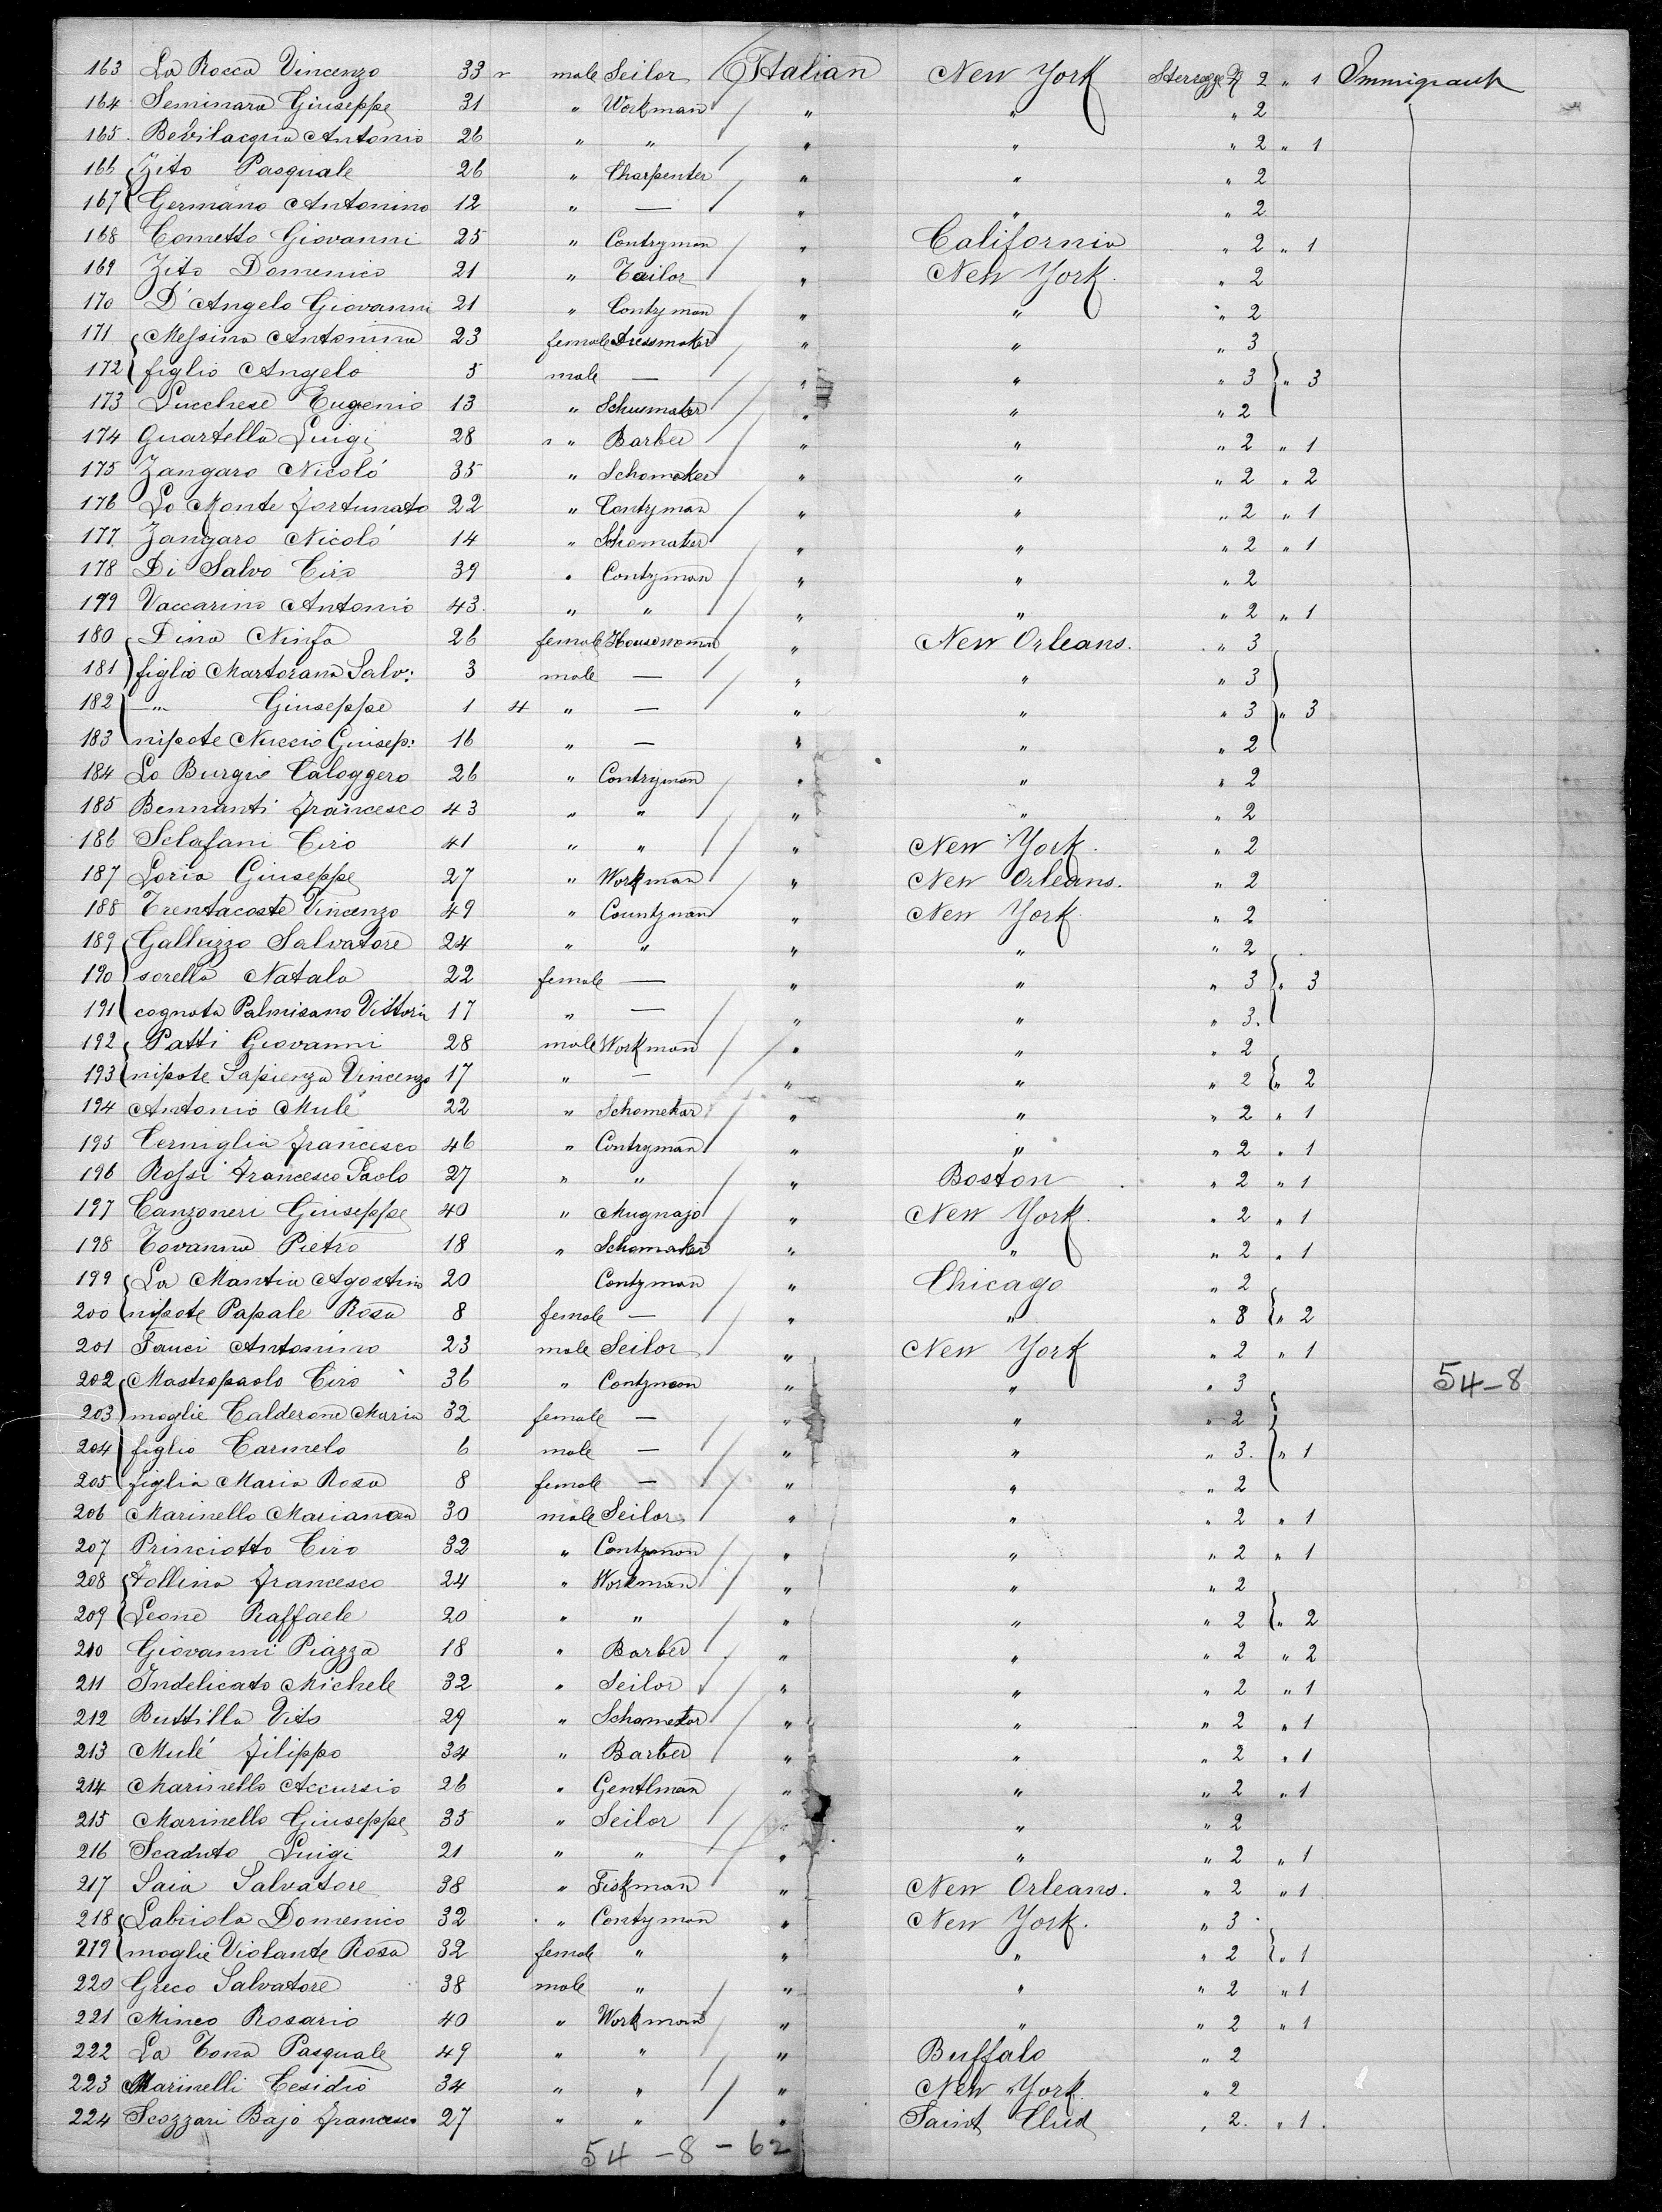 163 La Rocca Vincenzo 33 male Seilor Italian New York Sterregge N 2 " 1 Immigrant
164 Seminara Giuseppe 31 " Workman " " " 2
165 Bevilacqua Antonio 26 " " " " " 2 " 1
166 Zito Pasquale 26 " Charpenter " " " 2
167 Germano Antonino 12 " — " " " 2
168 Cometto Giovanni 25 " Contryman " California " 2 " 1
169 Zito Domenico 21 " Tailor " New York " 2
170 D'Angelo Giovanni 21 " Contryman " " " 2
171 Messina Antonina 23 female Dressmaker " " " 3
172 figlio Angelo 5 male — " " " 3 " 3
173 Lucchese Eugenio 13 " Schuemaker " " " 2
174 Quartella Luigi 28 " Barber " " " 2 " 1
175 Zangaro Nicoló 35 " Schomaker " " " 2 " 2
176 Lo Monte Fortunato 22 " Contryman " " " 2 " 1
177 Zangaro Nicoló 14 " Schomaker " " " 2 " 1
178 Di Salvo Ciro 39 " Contryman " " " 2
179 Vaccarino Antonio 43 " " " " " 2 " 1
180 Dina Ninfa 26 female Housewoman " New Orleans. " 3
181 figlio Martorana Salv: 3 male — " " " 3
182 —"— Giuseppe 1 4 " — " " " 3 " 3
183 nipote Nuccio Giusep: 16 " — " " " 2
184 Lo Burgio Caloggero 26 " Contryman " " " 2
185 Bennanti Francesco 43 " " " " " 2
186 Sclafani Ciro 41 " " " New York. " 2
187 Loria Giuseppe 27 " Workman " New Orleans. " 2
188 Trentacoste Vincenzo 49 " Countryman " New York " 2
189 Galluzzo Salvatore 24 " " " " " 2
190 sorella Natala 22 female — " " " 3 " 3
191 cognata Palmisano Vittoria 17 " — " " " 3.
192 Patti Giovanni 28 male Workman " " " 2
193 nipote Sapienza Vincenzo 17 " — " " " 2 " 2
194 Antonio Mulé 22 " Schomekar " " " 2 " 1
195 Cerniglia Francesco 46 " Contryman " " " 2 " 1
196 Rossi Francesco Paolo 27 " " " Boston " 2 " 1
197 Canzoneri Giuseppe 40 " Mugnajo " New York. " 2 " 1
198 Tovanna Pietro 18 " Schomaker " " " 2 " 1
199 La Mantia Agostino 20 Contyman " Chicago " 2
200 nipote Papale Rosa 8 female — " " " 8 " 2
201 Fauci Antonino 23 male Seilor " New York " 2 " 1
202 Mastropaolo Ciro 36 " Contyman " " " 3 54-8
203 moglie Calderone Maria 32 female — " " " 2
204 figlio Carmelo 6 male — " " " 3. " 1
205 figlia Maria Rosa 8 female — " " " 2
206 Marinello Mariano 30 male Seilor " " " 2 " 1
207 Princiotto Ciro 32 " Contyman " " " 2 " 1
208 Follina Francesco 24 " Workman " " " 2
209 Leone Raffaele 20 " " " " " 2 " 2
210 Giovanni Piazza 18 " Barber " " " 2 " 2
211 Indelicato Michele 32 " Seilor " " " 2 " 1
212 Buttilla Vito 29 " Schomekar " " " 2 " 1
213 Mulé Filippo 34 " Barber " " " 2 " 1
214 Marinello Accursio 26 " Gentlman " " " 2 " 1
215 Marinello Giuseppe 35 " Seilor " " " 2
216 Scaduto Luigi 21 " " " " " 2 " 1
217 Saia Salvatore 38 " Fiskman " New Orleans. " 2 " 1
218 Labriola Domenico 32 " Contyman " New York. " 3
219 moglie Violante Rosa 32 female " " " " 2 " 1
220 Greco Salvatore 38 male " " " " 2 " 1
221 Mineo Rosario 40 " Workman " " " 2 " 1
222 La Tona Pasquale 49 " " " Buffalo " 2
223 Marinelli Cesidio 34 " " " New York. " 2
224 Scozzari Bajo Francesco 27 " " " Saint Clud " 2. " 1.
54-8-62